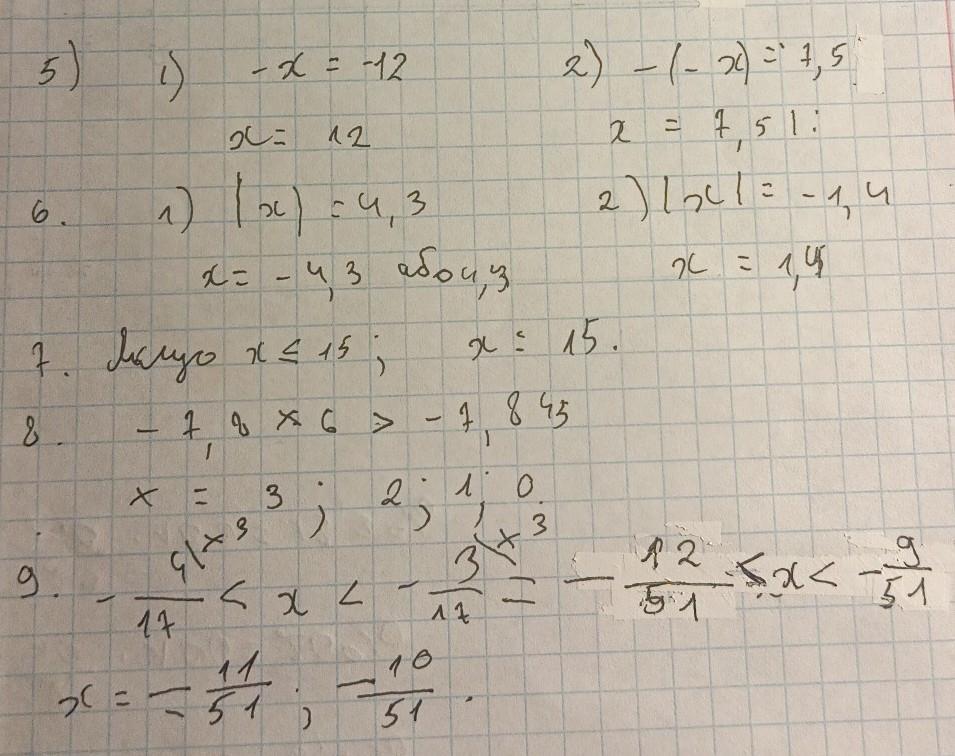 5) 1) -x = -12 2) -(-x) = 7,5
x = 12 x = 7,5
6. 1) |x| = 4,3 2) |x| = -1,4
x = -4,3 або 4,3 x = 1,4
7. x ≤ 15; x = 15.
8. -7,8 * 6 > -7,845
x = 3; 2; 1; 0.
9. - 4\×3 / 17 < x < - 3\×3 / 17 = - 12/51 < x < - 9/51
x = - 11/51; - 10/51.